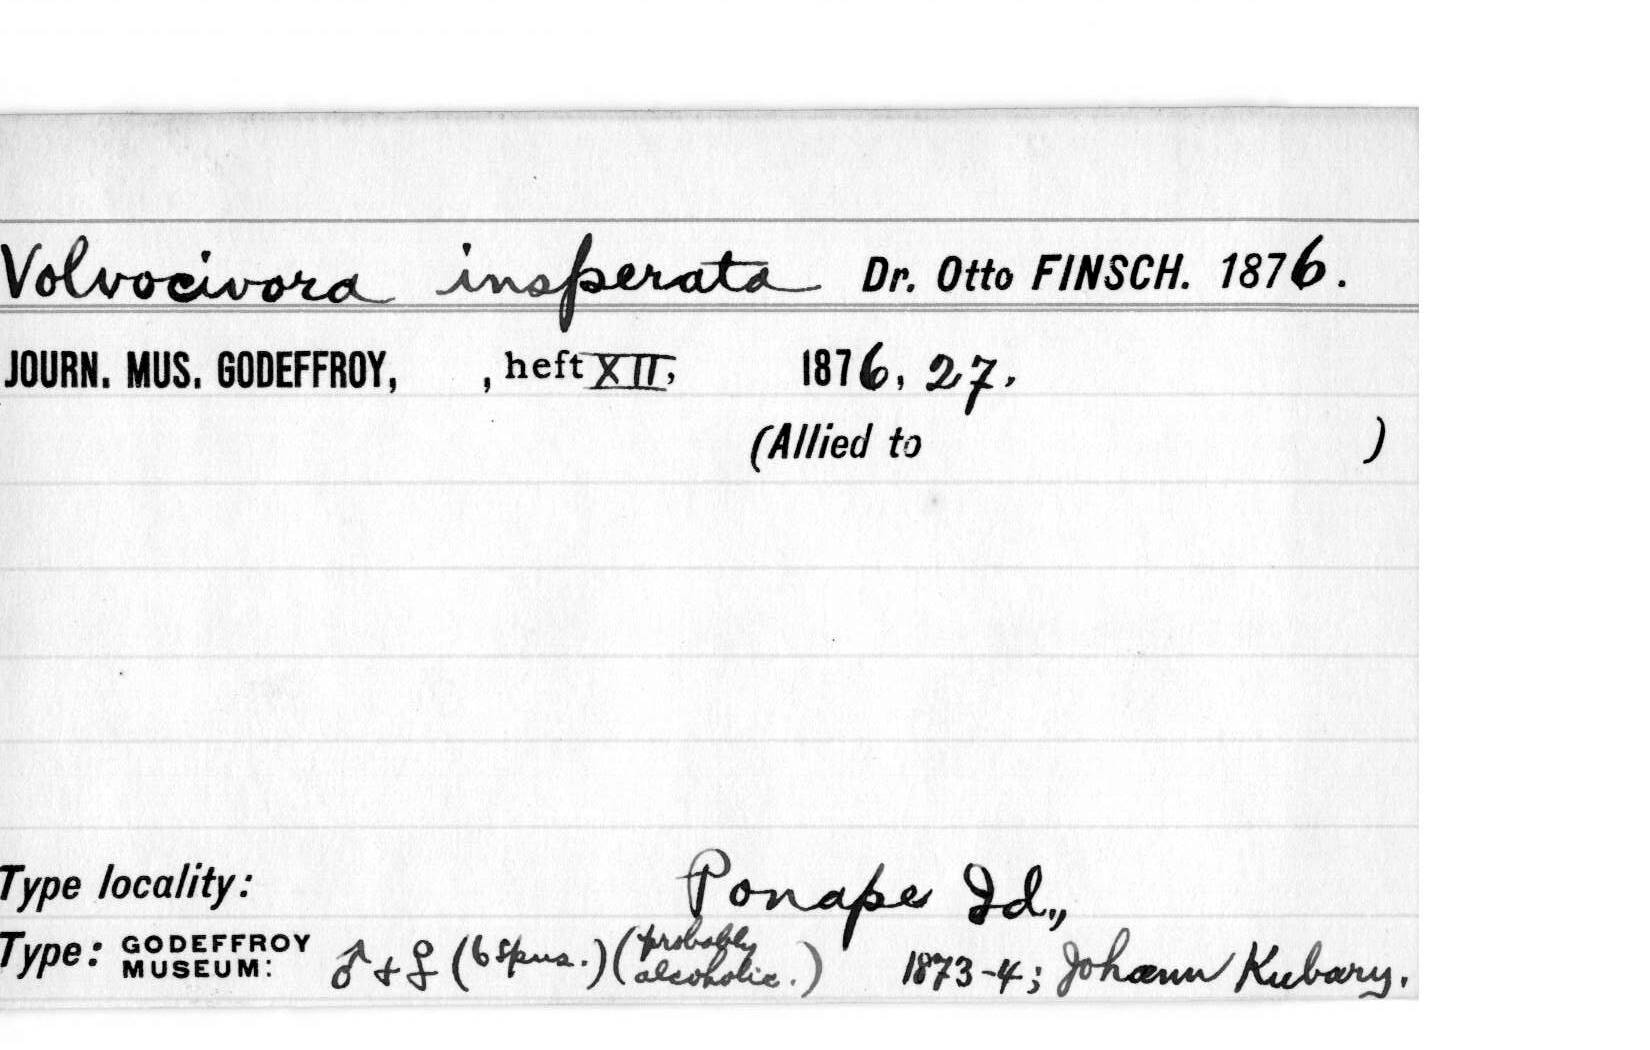 Volvocivora insperata Dr. Otto FINSCH. 1876.
JOURN. MUS. GODEFFROY, , heft XII; 1876, 27.
(Allied to )
Type locality: Ponape Id.,
Type: GODEFFROY MUSEUM: ♂ + ♀ (6 spns.) (probably alcoholic.) 1873-4; Johann Kubary.